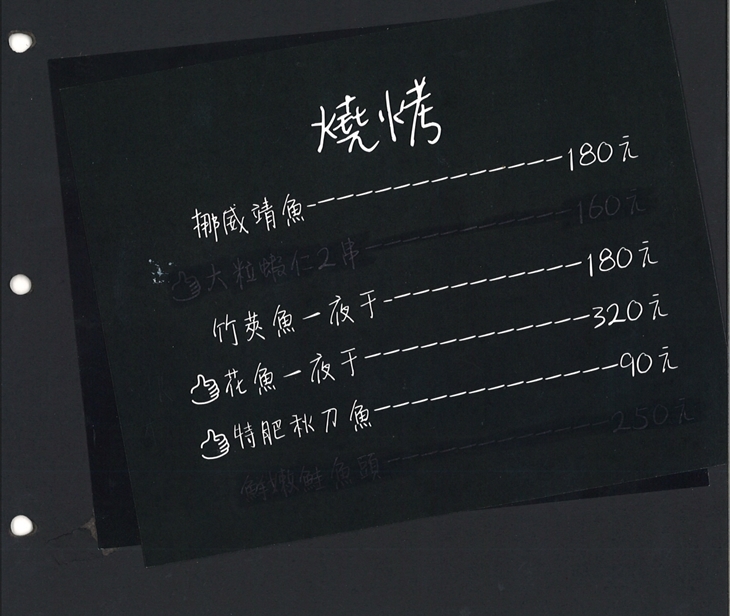 燒烤
挪威鯖魚---------------180元
大粒蝦仁2串------------160元
竹莢魚一夜干------------180元
花魚一夜干-------------320元
特肥秋刀魚--------------90元
鮮嫩鮭魚頭-------------250元